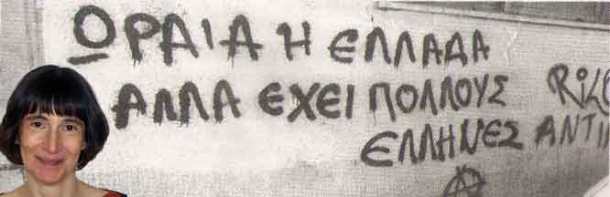 ΩΡΑΙΑ Η ΕΛΛΑΔΑ
ΑΛΛΑ ΕΧΕΙ ΠΟΛΛΟΥΣ
ΕΛΛΗΝΕΣ ΑΝΤΙ